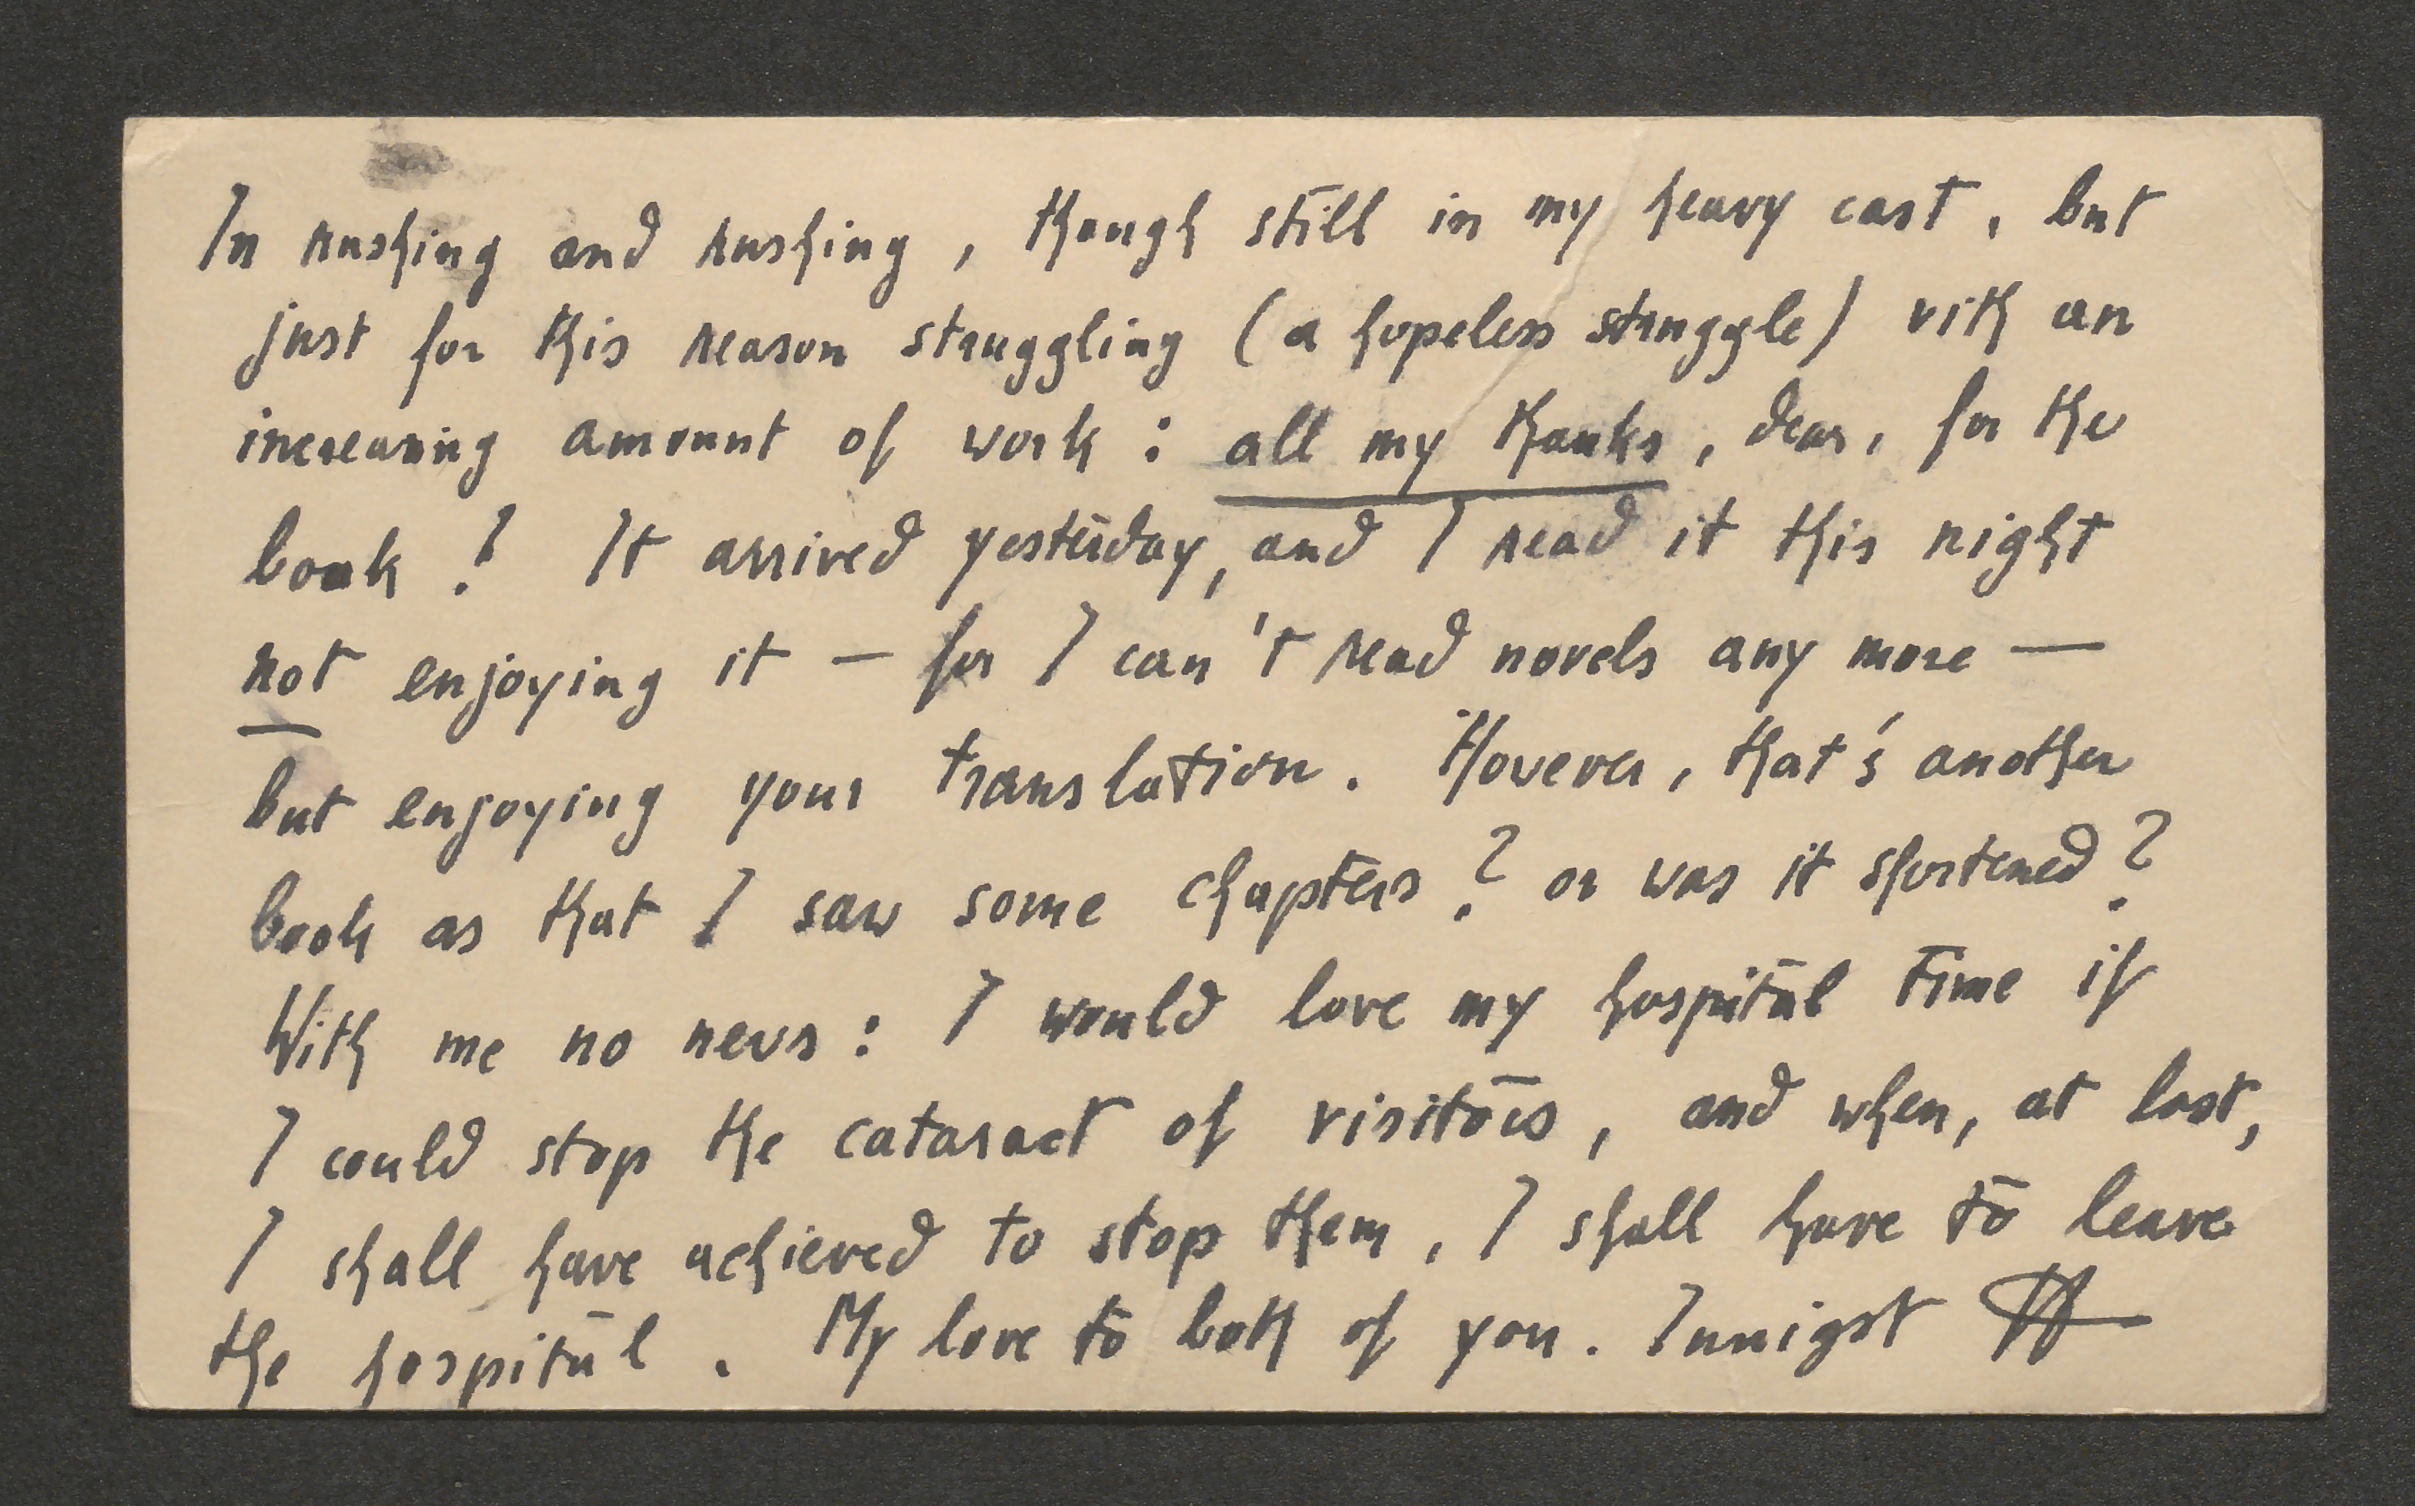 In rushing and rushing, though still in my heavy cast, but
just for this reason struggling (a hopeless struggle) vith an
increasing amount of work: all my thanks, dear, for the
book! It arrived yesterday, and I read it this night
not enjoying it — for I can't read novels any more —
but enjoying your translation. Hovever, that's another
book as that I saw some chapters? or was it shortened?
With me no nevs: I would love my hospital time if
I could stop the cataract of visitors, and when, at last,
I shall have achieved to stop them, I shall have to leave
the hospital. My love to both of you. Innigst H